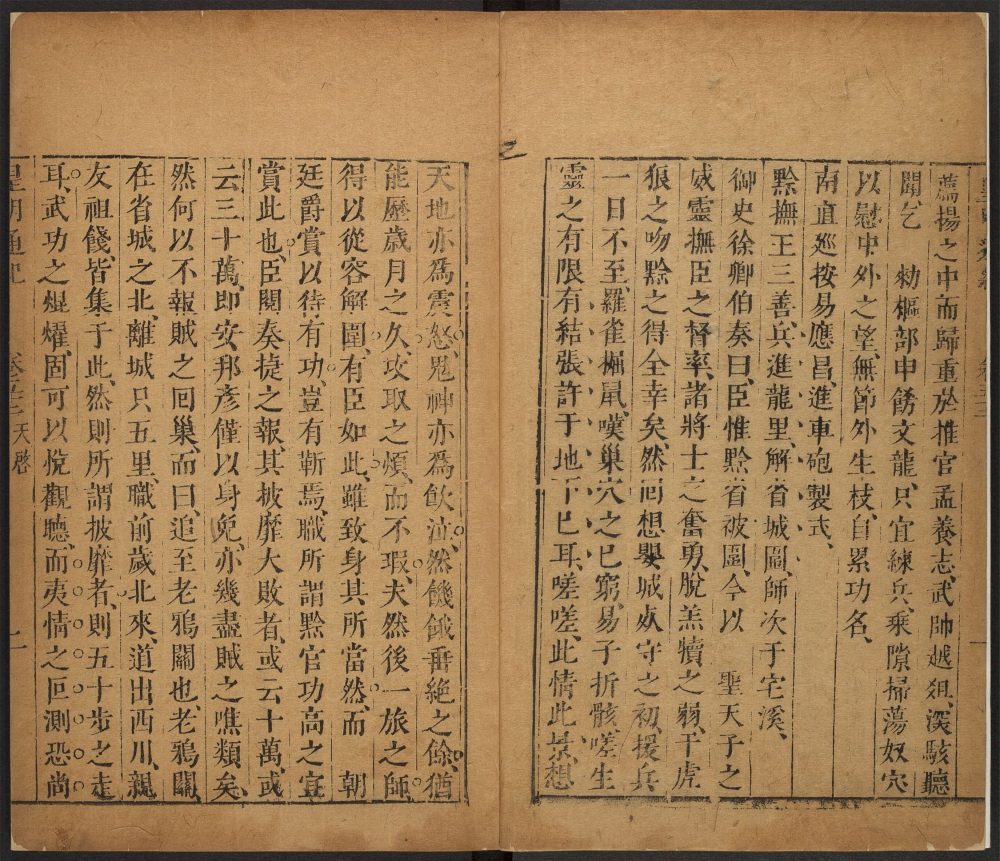 薦揚之中而歸重於推官孟養志武帥越俎深駭聽
聞乞 勑樞部申飭文龍只宜練兵乘隙掃蕩奴穴
以慰中外之望無節外生枝自累功名
南直巡按易應昌進車砲製式
黔撫王三善兵進龍里解省城圍師次于宅溪
御史徐卿伯奏曰臣惟黔省被圍今以 聖天子之
威靈撫臣之督率諸將士之奮勇脫羔犢之弱干虎
狼之吻黔之得全幸矣然回想嬰城死守之初援兵
一日不至羅雀掘鼠嘆巢穴之巳窮易子折骸嗟生
靈之有限有結張許于地下巳耳嗟嗟此情此景想
天地亦爲震怒鬼神亦爲飲泣然饑餓垂絕之餘猶
能歷歲月之久攻取之煩而不瑕夫然後一旅之師
得以從容解圍有臣如此雖致身其所當然而 朝
廷爵賞以待有功豈有靳焉職所謂黔官功高之宜
賞此也臣閱奏捷之報其披靡大敗者或云十萬或
云三十萬即安邦彥僅以身免亦幾盡賊之噍類矣
然何以不報賊之回巢而曰追至老鴉關也老鴉關
在省城之北離城只五里職前歲北來道出西川親
友祖餞皆集于此然則所謂披靡者則五十步之走
耳武功之焜燿固可以悅觀聽而夷情之叵測恐尚
皇明通紀 卷五十二天啓 一